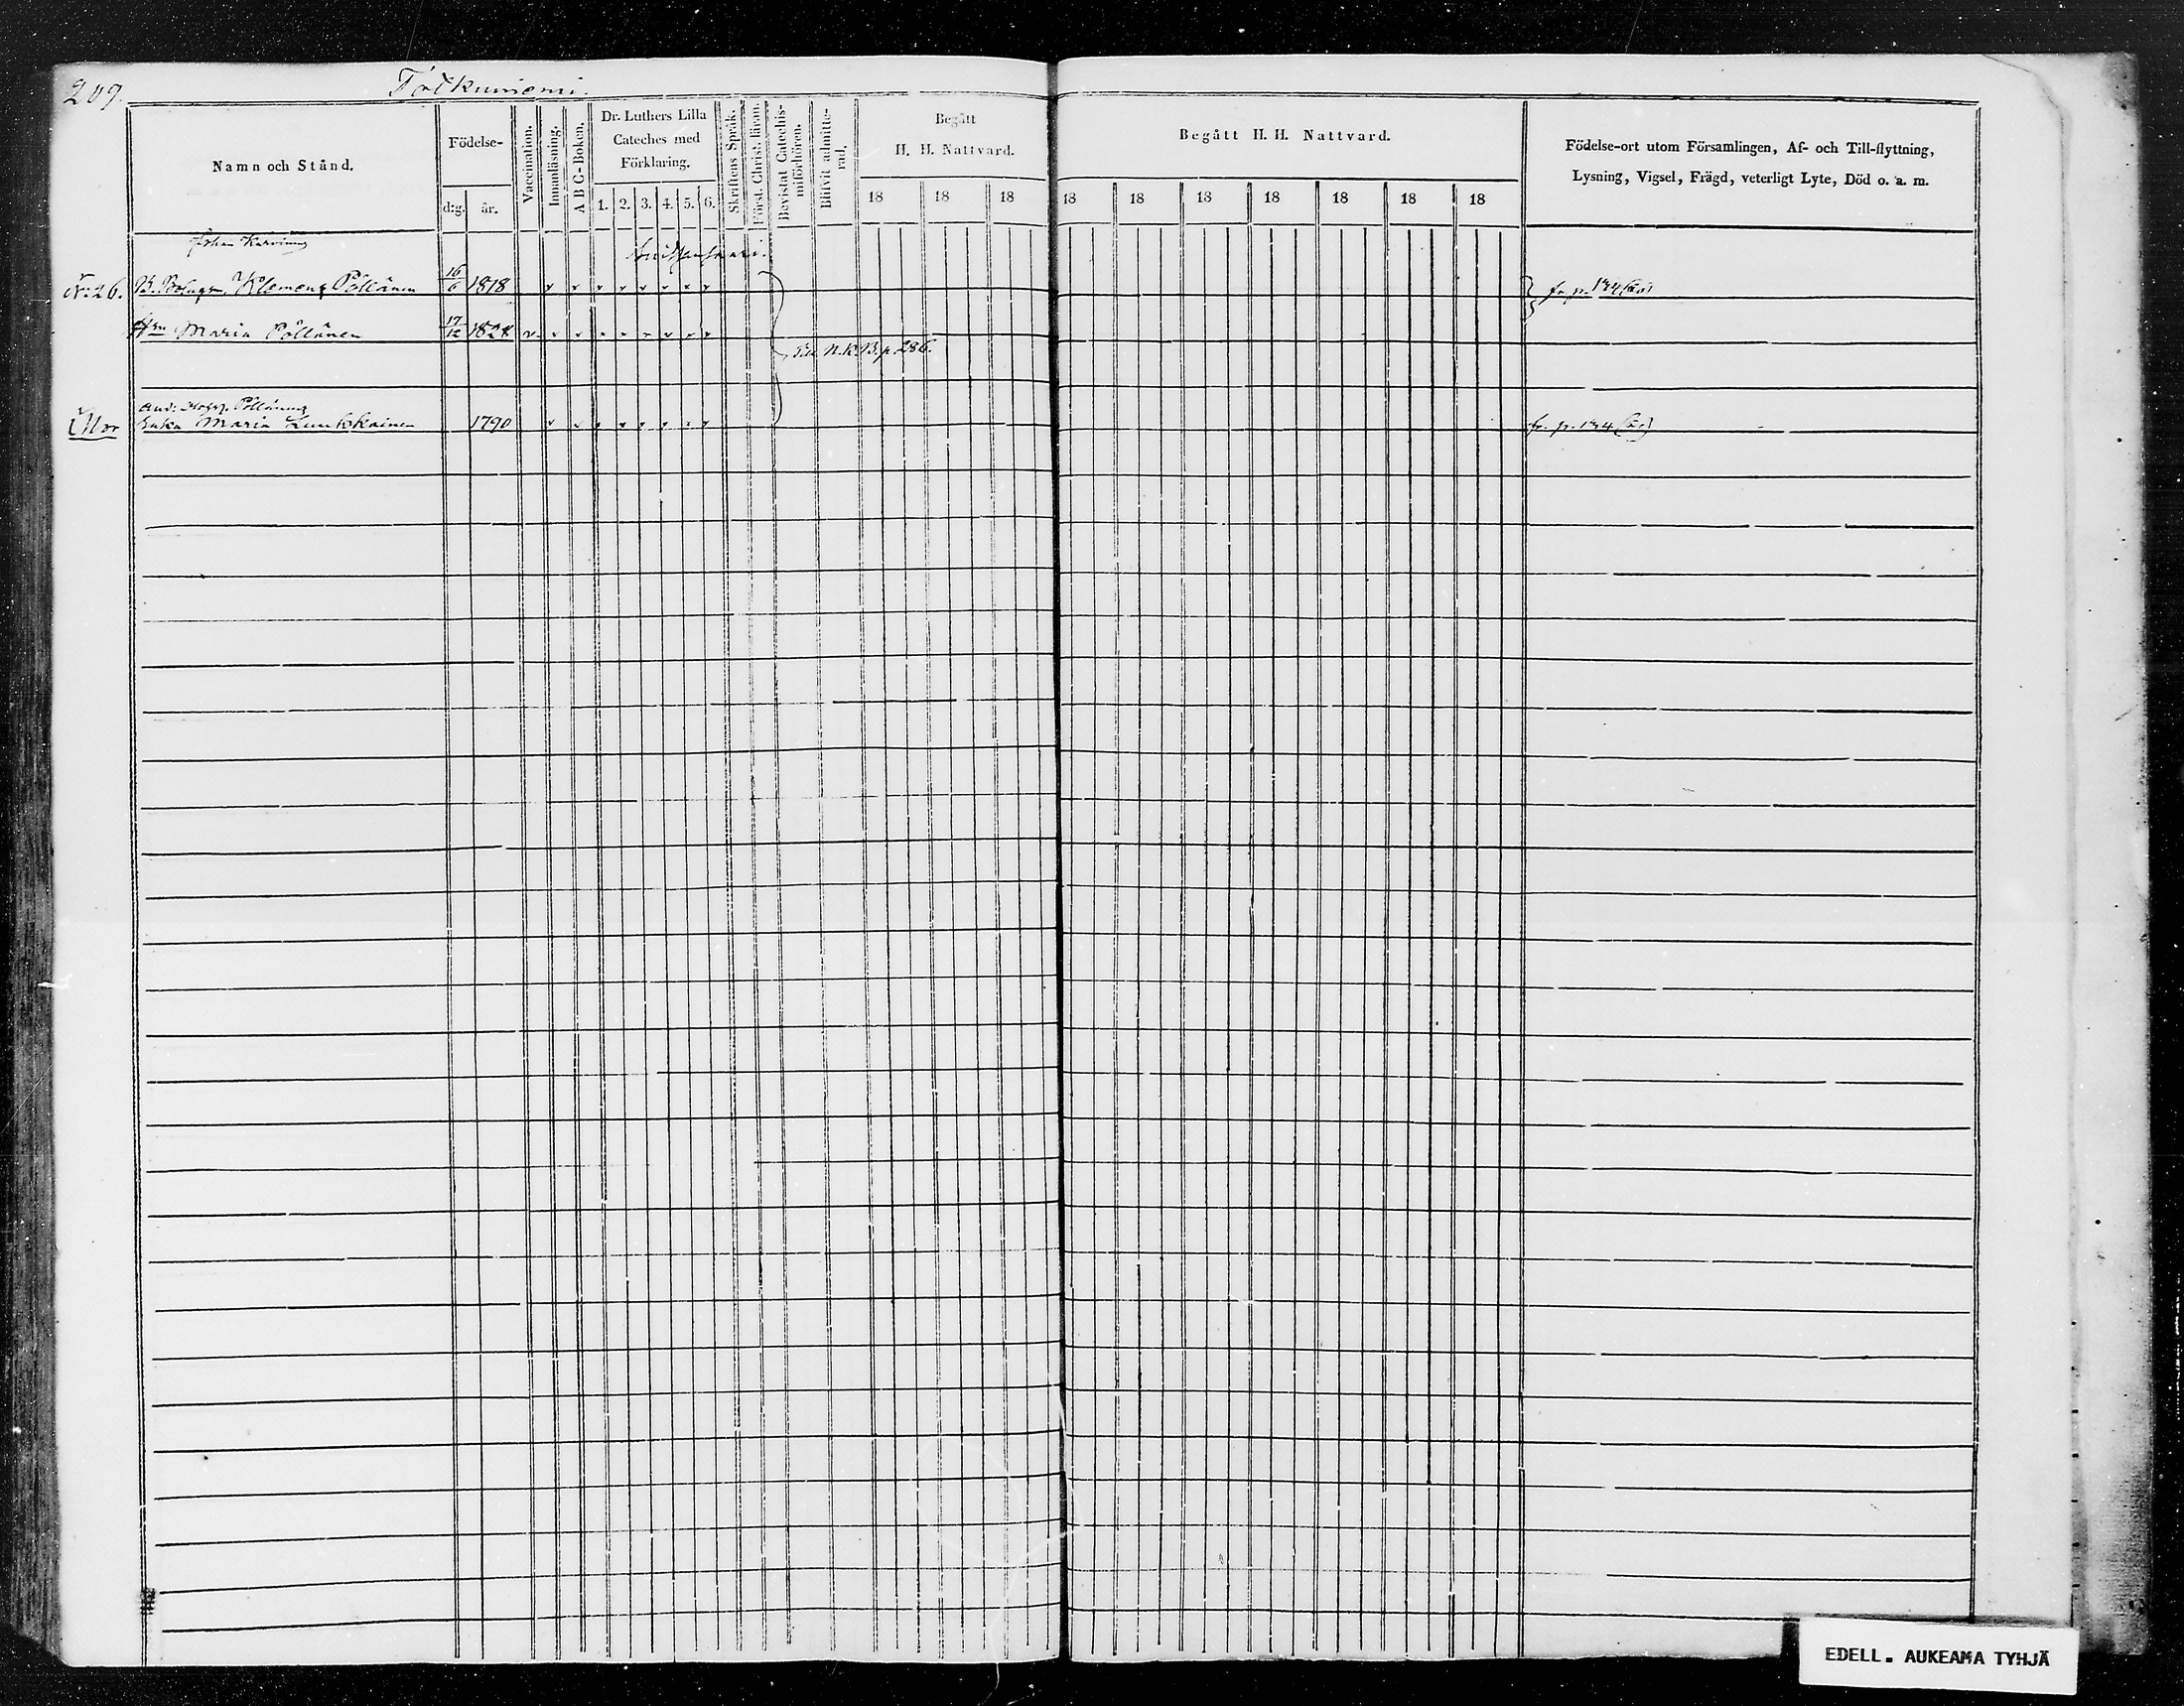 209.
Totkuniemi.
Namn och Stånd.
Födelse-
d:g. år.
Vaccination.
Innanläsning.
A B C-Boken.
Dr. Luthers Lilla
Cateches med
Förklaring.
1. 2. 3. 4. 5. 6.
Skriftens Språk.
Först. Christ. läran.
Bevistat Catechis-
miförhören.
Blifvit admitte-
rad.
Begått
H. H. Nattvard.
18 18 18
Begått H. H. Nattvard.
18 18 18 18 18 18 18
Födelse-ort utom Församlingen, Af- och Till-flyttning,
Lysning, Vigsel, Frägd, veterligt Lyte, Död o. a. m.
Johan Karvinens
N:o 26. Klemens Pöllänen 16/6 1818 v v v v v v v v fr. p. 134
Hu Maria Pöllänen 17/12 1828 v v v v v v v v v
Till N.K.B. p. 286.
And: Pöllänens
Enka Maria Lunkkainen 1790 v v v v v v v v fr. p. 134
EDELL. AUKEAMA TYHJÄ